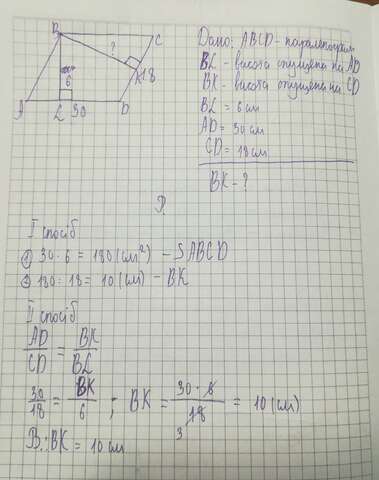 B
C
?
K
18
6
A
L
30
D
Дано: ABCD - паралелограм
BL - висота опущена на AD
BK - висота опущена на CD
BL = 6 см
AD = 30 см
CD = 18 см
BK - ?
Р.
I спосіб
① 30 · 6 = 180 (см²) - SABCD
② 180 : 18 = 10 (см) - BK
II спосіб
AD/CD = BK/BL
30/18 = BK/6 ; BK = 30 · 6/18 = 10 (см)
3
В.: BK = 10 см